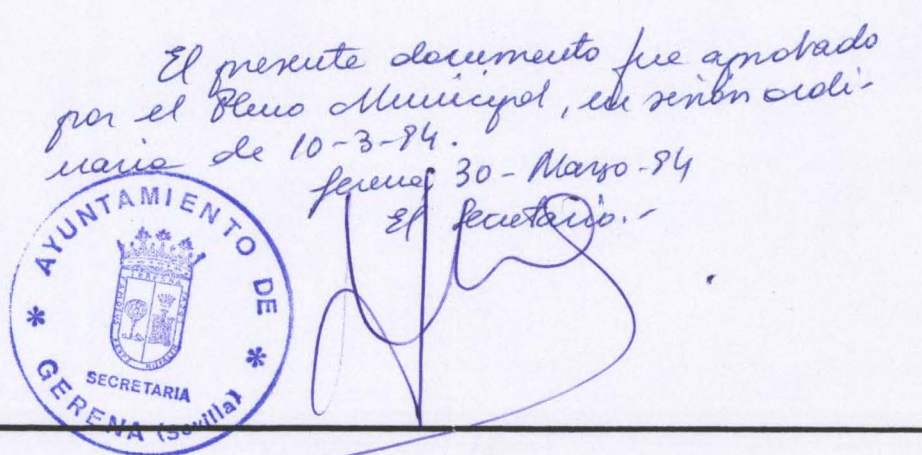 El presente documento fue aprobado
por el Pleno Municipal, en sesión ordi-
naria de 10-3-94.
Gerena, 30-Marzo-94
El Secretario.-
* AYUNTAMIENTO DE *
SECRETARIA
GERENA (Sevilla)